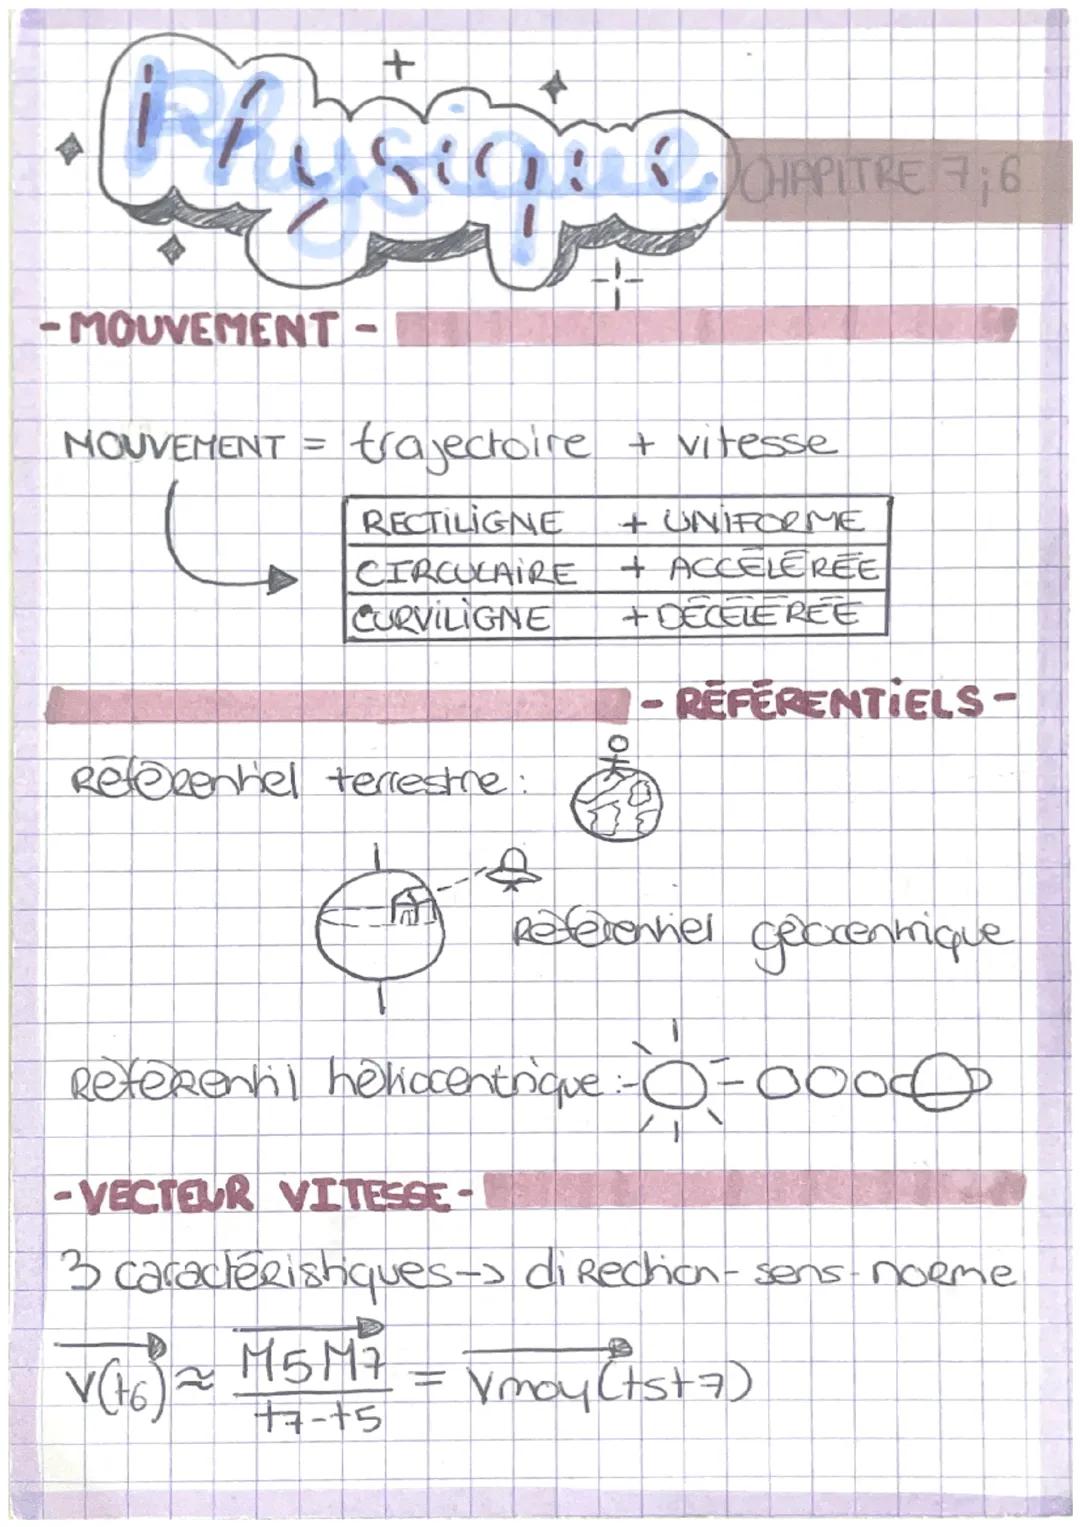 Physique
CHAPITRE 7;6
- MOUVEMENT -
MOUVEMENT = trajectoire + vitesse
RECTILIGNE + UNIFORME
CIRCULAIRE + ACCÉLÉRÉE
CURVILIGNE + DÉCÉLÉRÉE
- RÉFÉRENTIELS -
Référentiel terrestre :
Référentiel géocentrique
Référentil héliocentrique :
- VECTEUR VITESSE -
3 caractéristiques -> direction - sens - norme
v(t6) ≈ M5M7 / t7-t5 = Vmoy(t5t7)